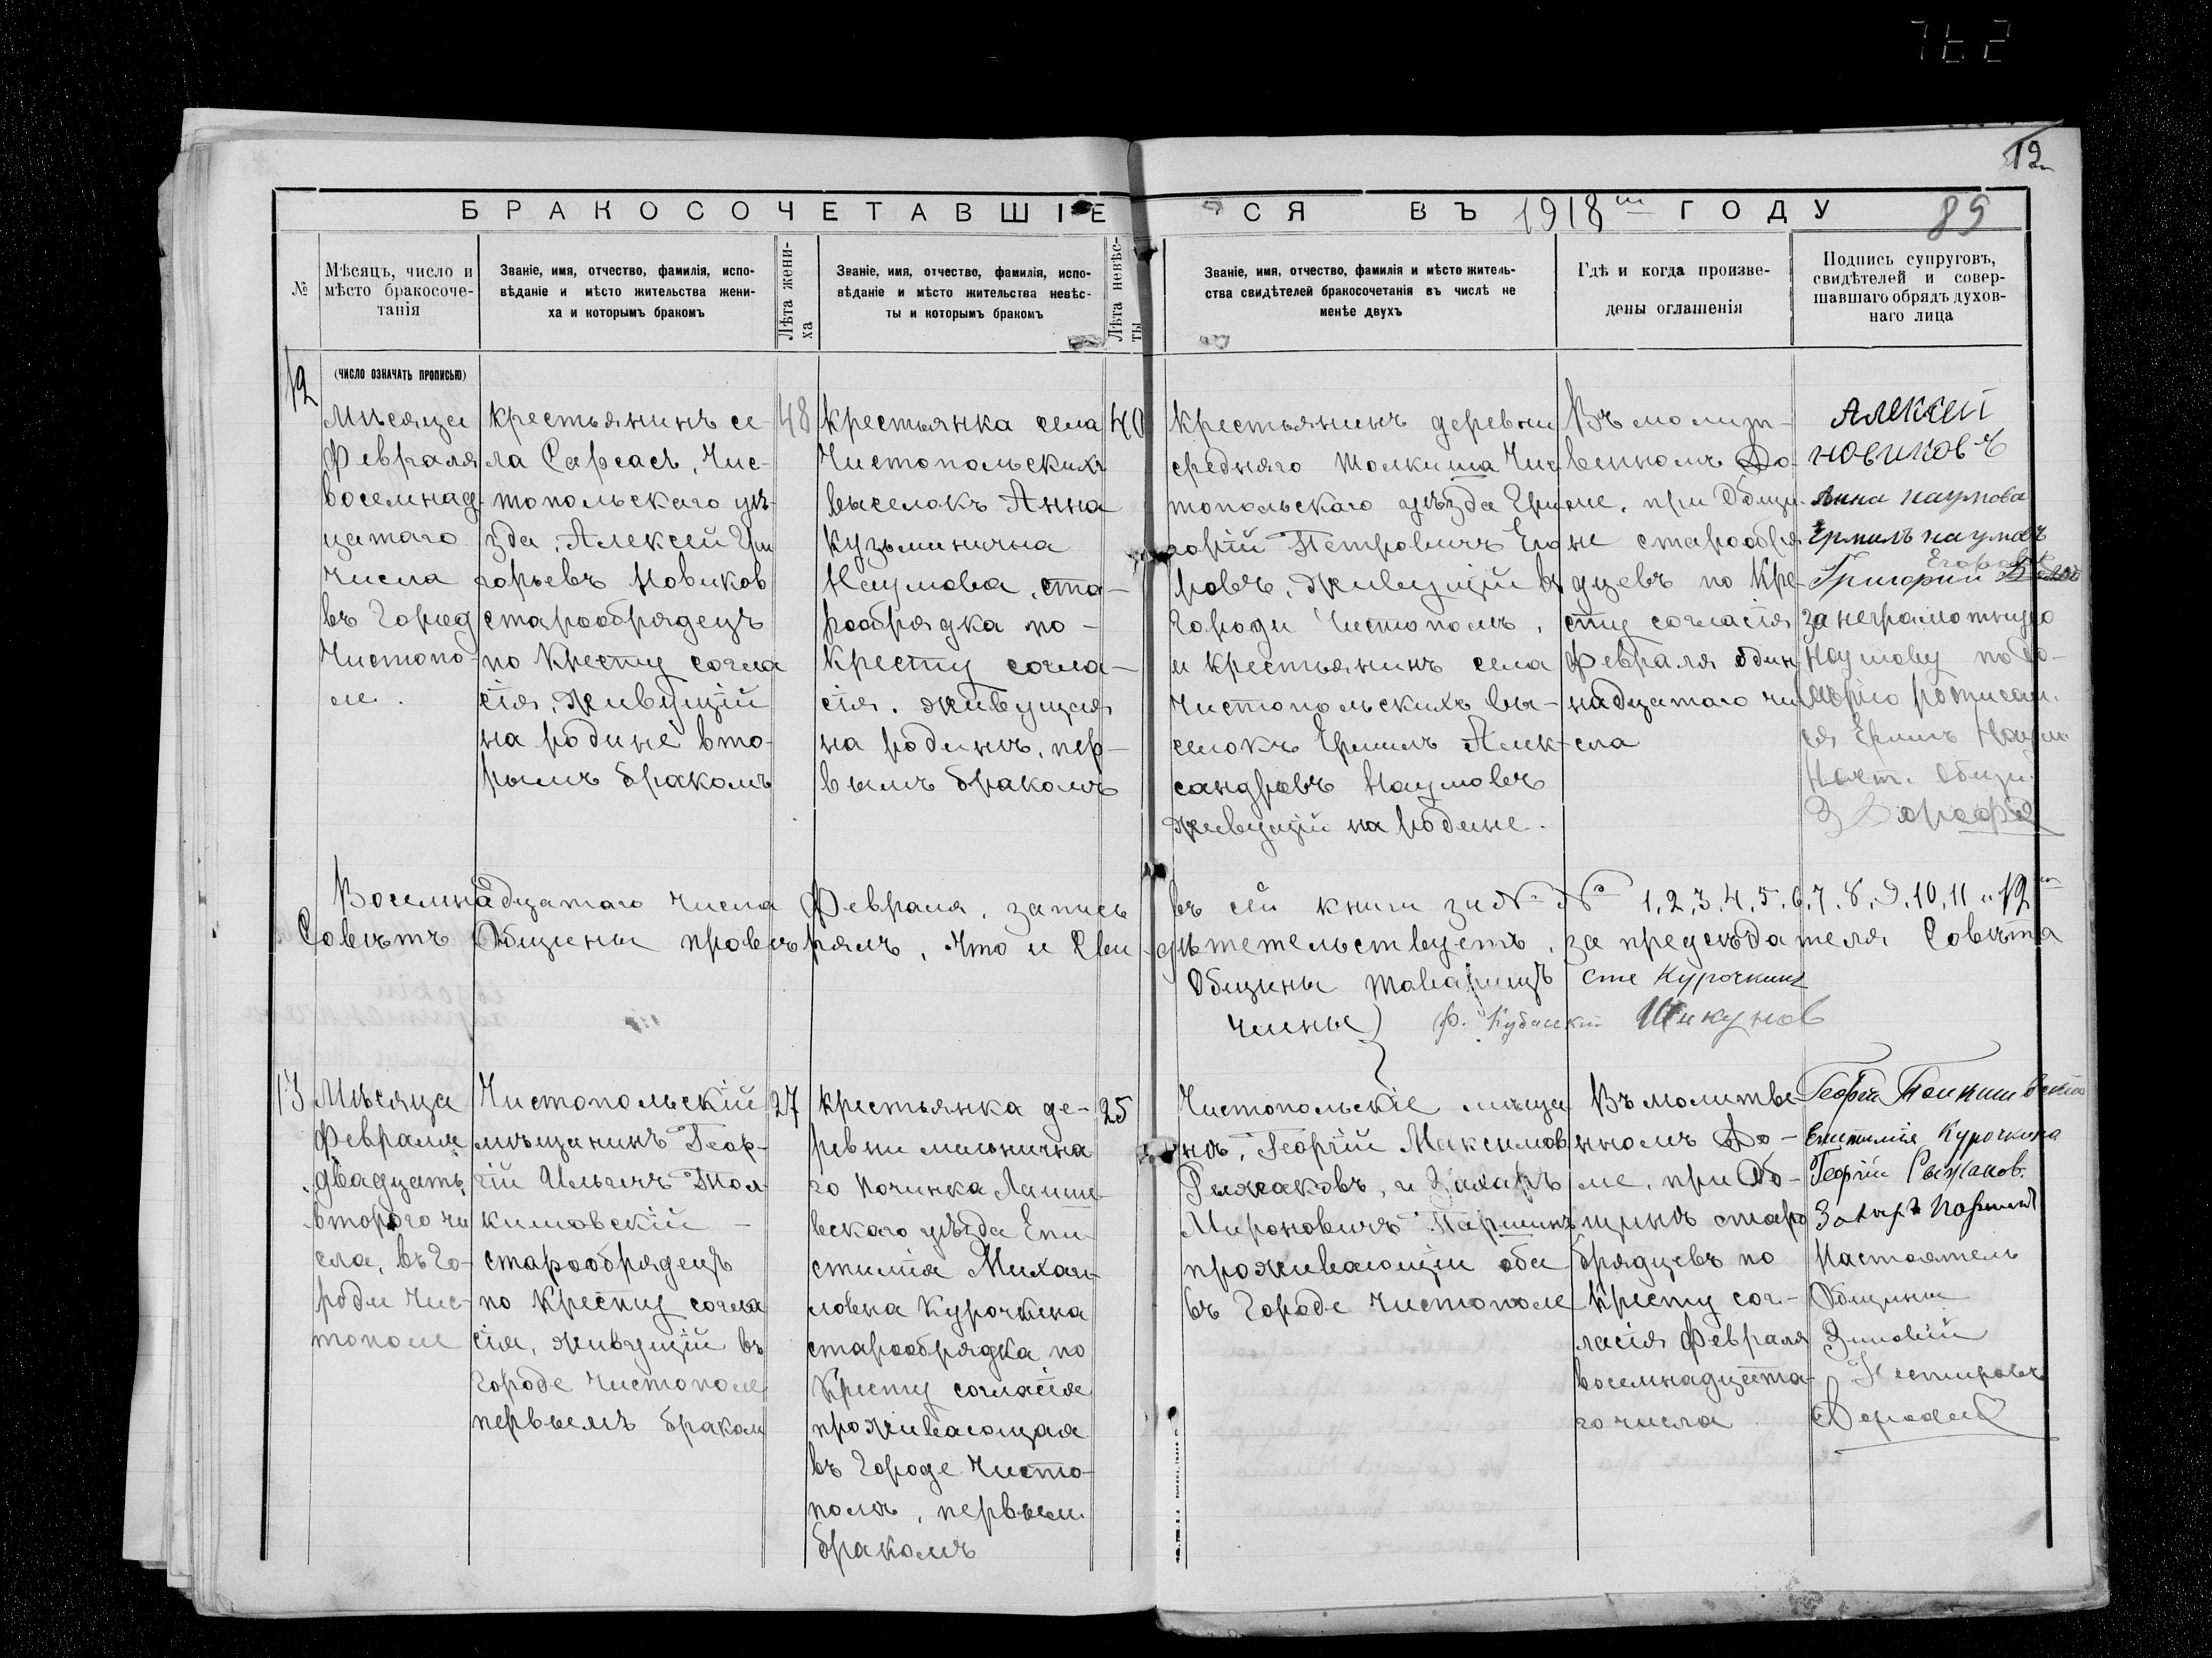 12
БРАКОСОЧЕТАВШІЕСЯ ВЪ 1918 ГОДУ 89
№
Мѣсяцъ, число и
мѣсто бракосоче-
танія
Званіе, имя, отчество, фамилія, испо-
вѣданіе и мѣсто жительства жени-
ха и которымъ бракомъ
Лѣта жени-
ха
Званіе, имя, отчество, фамилія, испо-
вѣданіе и мѣсто жительства невѣс-
ты и которымъ бракомъ
Лѣта невѣс-
ты
Званіе, имя, отчество, фамилія и мѣсто житель-
ства свидѣтелей бракосочетанія въ числѣ не
менѣе двухъ
Гдѣ и когда произве-
дены оглашенія
Подпись супруговъ,
свидѣтелей и совер-
шавшаго обрядъ духов-
наго лица
12
(ЧИСЛО ОЗНАЧАТЬ ПРОПИСЬЮ)
Мѣсяца
Февраля
восемнад-
цатаго
числа
въ Город
Чистопо-
ле.
крестьянинъ се-
ла Сарсасъ, Чис-
топольскаго уѣ-
зда, Алексей Гри
горьевъ Новиков
старообрядецъ
по Кресту согла
сія, живущій
на родине вто-
рымъ бракомъ
48
крестьянка села
Чистопольскихъ
выселокъ Анна
Кузьминична
Наумова, ста-
рообрядка по-
Кресту согла-
сія. живущая
на родинѣ, пер-
вымъ бракомъ
40
крестьянинъ деревни
средняго Толкиша Чис
топольскаго уѣзда Гри
горій Петровичъ Его
ровъ, живущій въ
Городи Чистополѣ,
и крестьянинъ села
Чистопольскихъ вы-
селокъ Ермилъ Алек-
сандровъ Наумовъ
живущій на родине.
Въ молит-
венномъ До-
ме, при Общи-
не старообря
дцевъ по Кре-
сту согласія
Февраля один
надцатаго чи
сла
Алексей
новиковъ
Анна наумова
Ермилъ наумовъ
Егоровъ
Григорий
за неграмотную
Наумову по до-
вѣрію росписал
ся Ермилъ Наумо
Наст. Общи.
Восемнадцатаго числа Февраля, запись въ сей книги за №№ 1,2,3,4,5,6,7,8,9,10,11 и 12
Совѣтъ Общины провѣрялъ, что и Сви-дѣтетельствуетъ, за председателя Совѣта
Общины товарищъ Сте Курочкинъ
Члены Ф. Кубаскин Шикунов
13
Мѣсяца
Февраля
двадцать
второго чи
сла, въ Го-
роди Чис-
тополе
Чистопольскій
мѣщанинъ Геор-
гій Ильичъ Тол-
кишовскій -
старообрядецъ
по Кресту согла
сія, живущій въ
Городе Чистополе
первымъ браком
27
крестьянка де-
ревни мельнична
го Починка Лаише
вскаго уѣзда Епи-
стимія Михаи-
ловна Курочкина
старообрядка по
Кресту согласія
проживающая
въ Городе Чисто-
поля, первым
бракомъ
25
Чистопольскіе мѣща
нѣ, Георгій Максимов
Рыжаковъ, и Захаръ
Мироновичъ Паршинъ
проживающіи оба
въ Городе Чистополе
Въ молитве
нномъ До-
ме, при Об-
щинѣ старо
брядцевъ по
Кресту сог-
ласія Февраля
восемнадцата-
го числа
Георгій
Епистимія Курочкина
Георгій Рыжаков.
Захаръ Паршинъ
Настоятель
Общины
Зиновій
Нестировъ